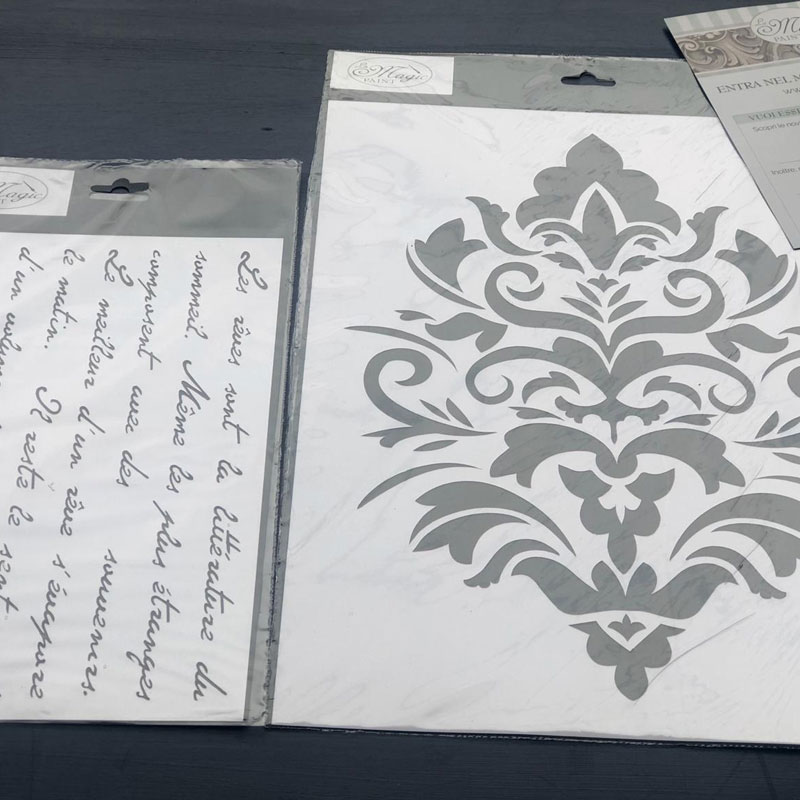 Magic
PAINT
Les rêves sont la littérature du
sommeil. Même les plus étranges
composent avec des souvenirs.
Le meilleur d'un rêve s'évapore
le matin. Il reste le sent
d'un
Le Magic
PAINT
PAINT
ENTRA NEL M
WW
VUOI ESSE
Scopri le nov
Inoltre,